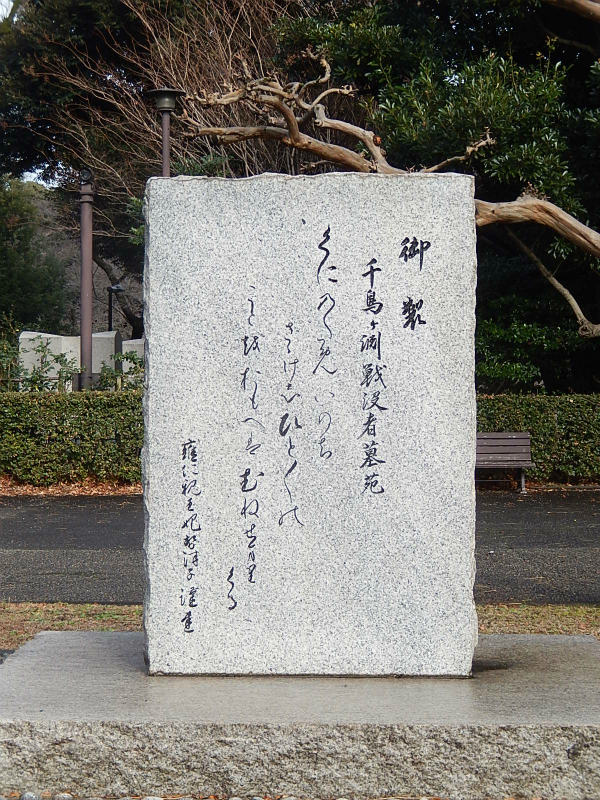 御製
千鳥ヶ淵戦没者墓苑
くにのためいのち
ささげしひと〲の
ことをおもへばむねせまり
くる
雍仁親王妃勢津子謹書